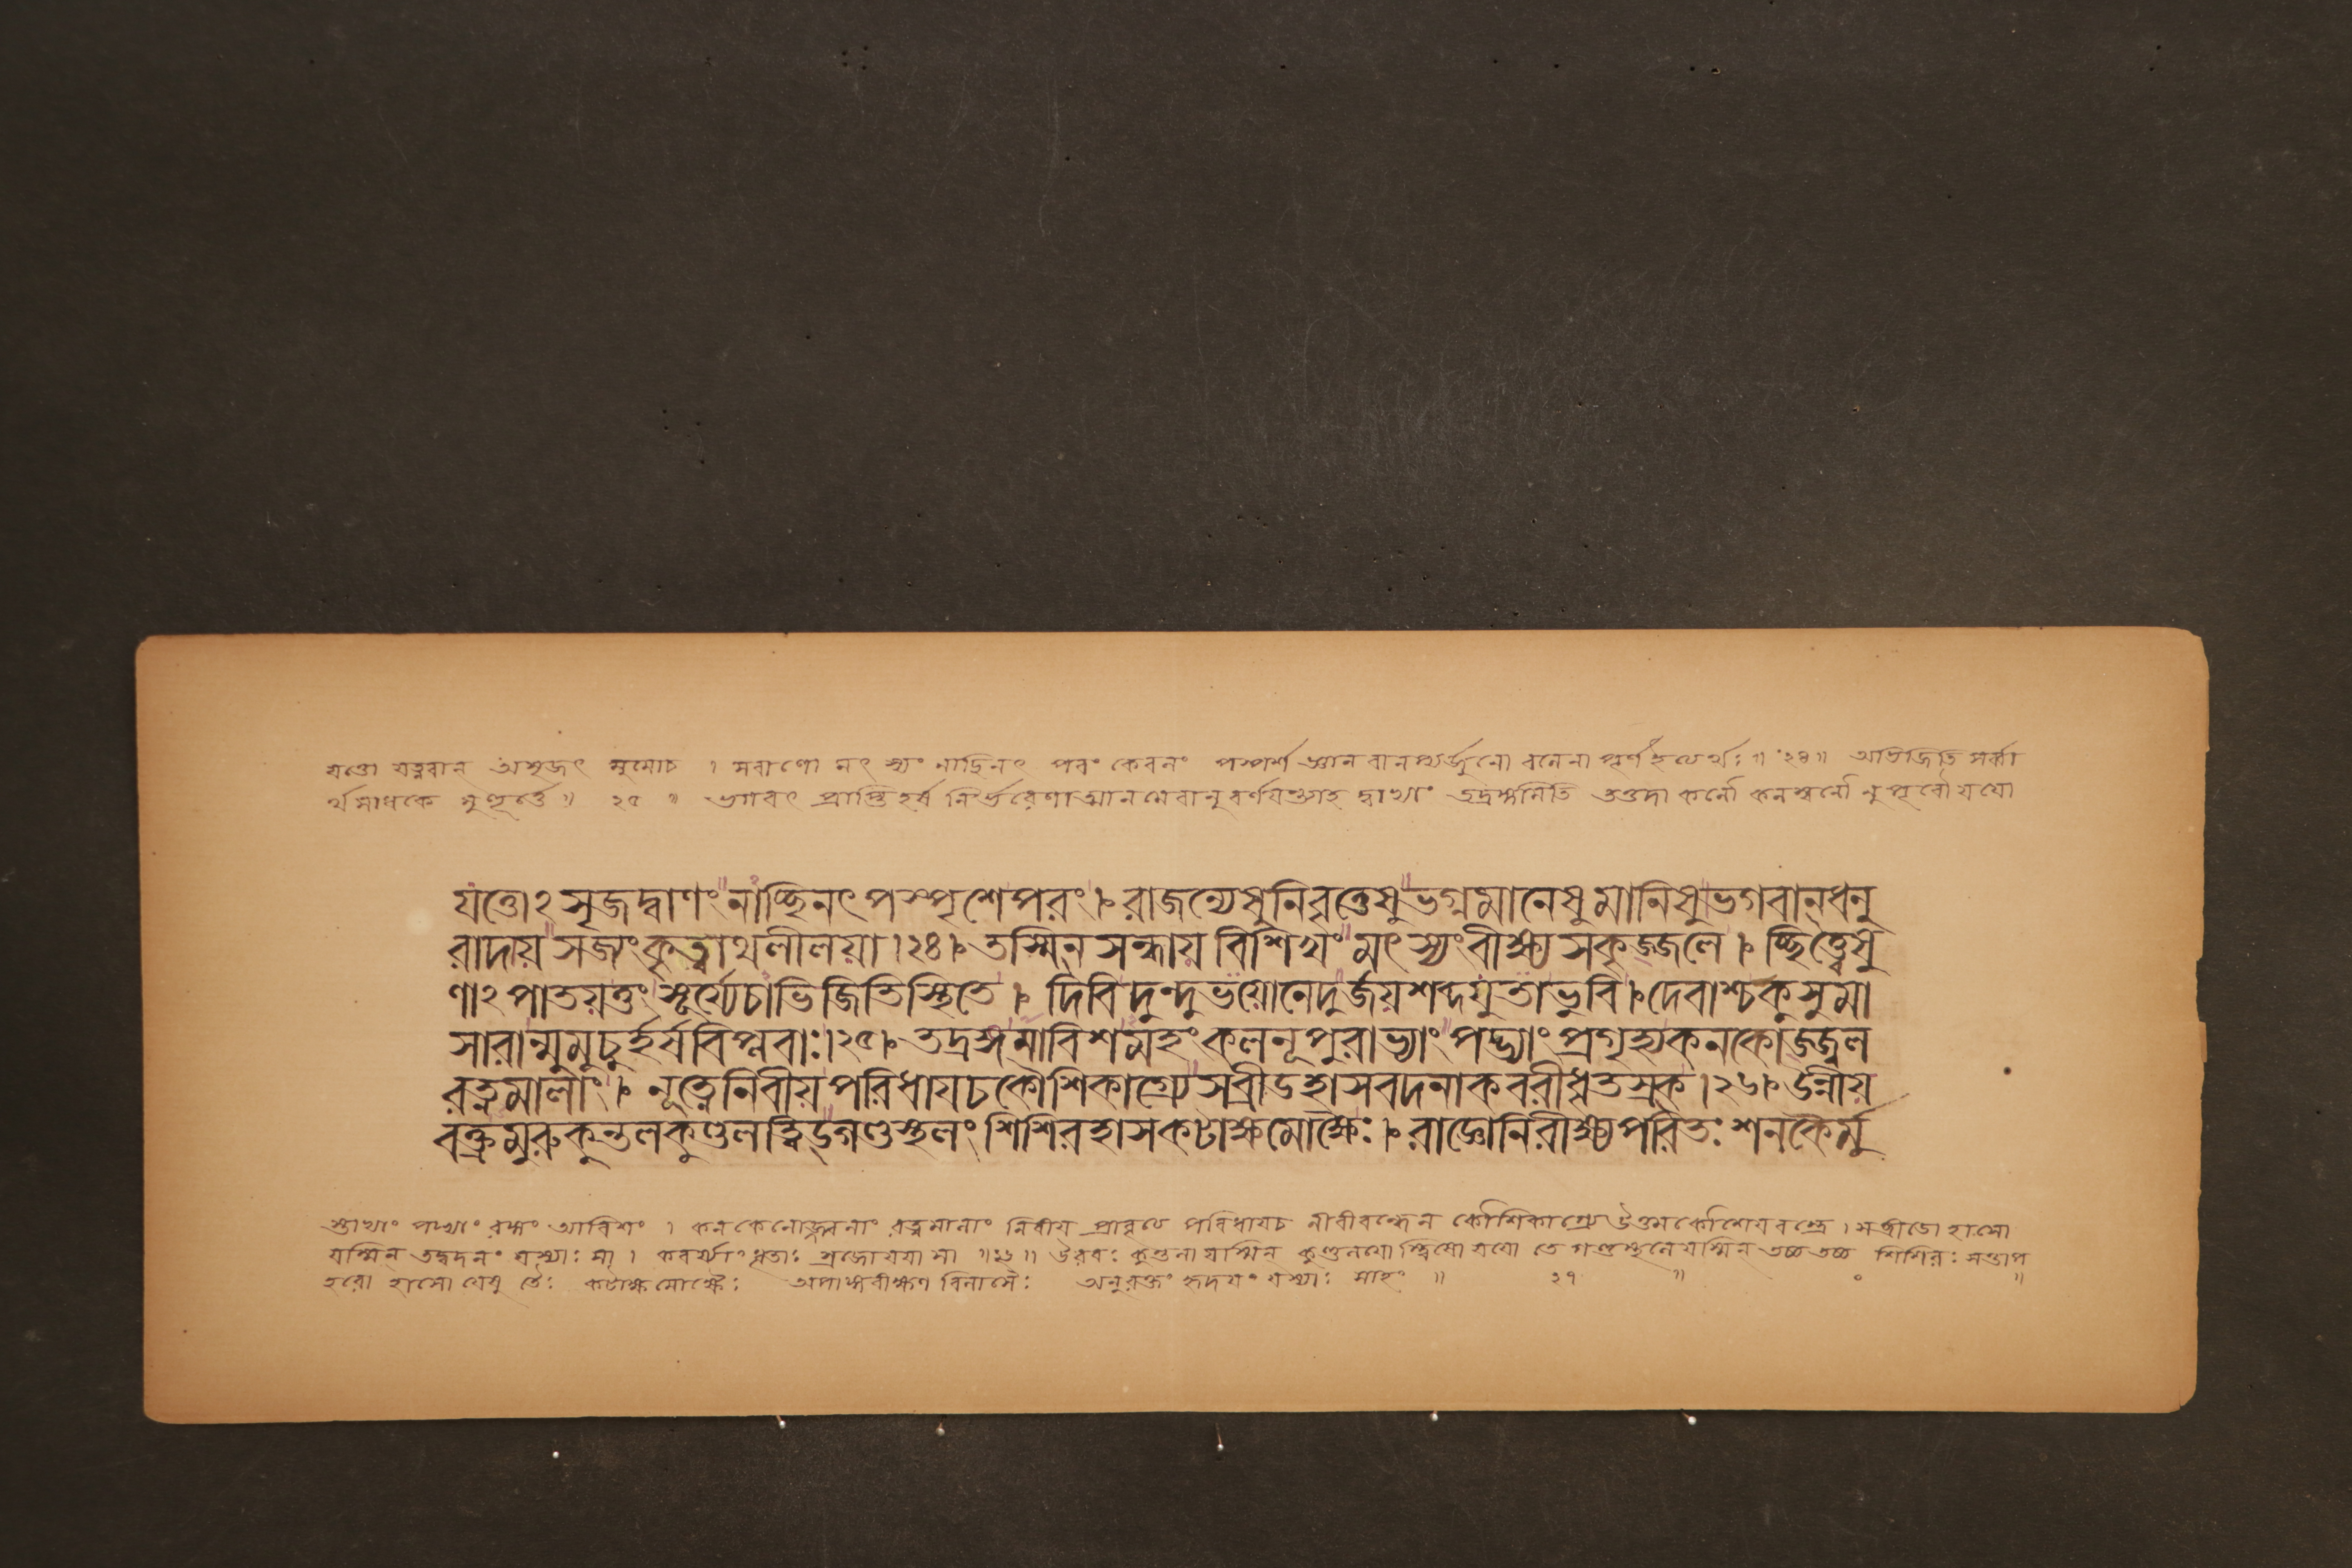 যত্তো যত্নবান অসৃজৎ মুমোচ । সবাণো মৎ স্যং নাচ্ছিনৎ পরং কেবলং পস্পর্শ জ্ঞান বানপ্যর্জুনো বলেনা পূর্ণ ইত্যর্থঃ ॥ ২৪ ॥ অভিজিতি সর্ব্বা
র্থসাধকে মুহূর্ত্তে ॥ ২৫ ॥ ভগবৎ প্রাপ্তি হর্ষ নির্ভরেণাত্মানমেবানুবর্ণযন্ত্যাহ দ্বাভ্যাং তদ্রঙ্গমিতি তত্তদা কলৌ কলস্বনৌ নুপুরৌ যযো
যত্তোঽ সৃজদ্বাণং নাচ্ছিনৎ পস্পৃশে পরং । রাজন্যেষু নিবৃত্তেষু ভগ্নমানেষু মানিষু ভগবান্ ধনু
রাদায় সজ্যং কৃত্বাথ লীলয়া । ২৪ । তস্মিন্ সন্ধায় বিশিখং মৎস্যং বীক্ষ্য সকৃজ্জলে । চ্ছিত্ত্বেষু
ণাঽ পাতয়ত্তুং সূর্য্যে চাভিজিতি স্থিতে । দিবি দুন্দুভয়ো নেদুর্জয়শব্দযুতা ভুবি । দেবাশ্চ কুসুমা
সারান্মুমুচুর্হর্ষবিপ্লবাঃ । ২৫ । তদ্রঙ্গমাবিশমহং কলনূপুরাভ্যাং পদ্ভ্যাং প্রগৃহ্য কনকোজ্জ্বল
রত্নমালাং । নূত্নে নিবীয় পরিধায চ কৌশিকাগ্র্যে সব্রীডহাসবদনা কবরীধৃতস্রক্ । ২৬ । উন্নীয়
বক্ত্রমুরুকুন্তলকুণ্ডলত্বিড্গণ্ডস্থলং শিশিরহাসকটাক্ষমোক্ষৈঃ । রাজ্ঞো নিরীক্ষ্য পরিতঃ শনকৈর্মু
স্তাভ্যাং পদ্ভ্যাং রঙ্গং আবিশং । কনকেনোজ্জ্বলনাং রত্নমালাং নিবীয প্রাবৃত্য পরিধাযচ নীবীবন্ধেন কৌশিকাগ্র্যে উত্তমকৌশেযবস্ত্রে । সব্রীডো হাসো
যস্মিন্ তদ্বদনং যস্যাঃ সা । কবর্য্যাং ধৃতাঃ স্রজো যযা সা ॥ ২৬ ॥ উরবঃ কুন্তলা যস্মিন্ কুণ্ডলযো স্ত্বিষো যযো তে গণ্ডস্থলে যস্মিন্ তচ্চ তচ্চ শিশিরঃ সন্তাপ
হরো হাসো যেষু তৈঃ কটাক্ষ মোক্ষৈঃ অপাঙ্গবীক্ষণ বিলাসৈঃ অনুরক্তং হৃদযং যস্যাঃ সাহং ॥ ২৭ ॥ ॥